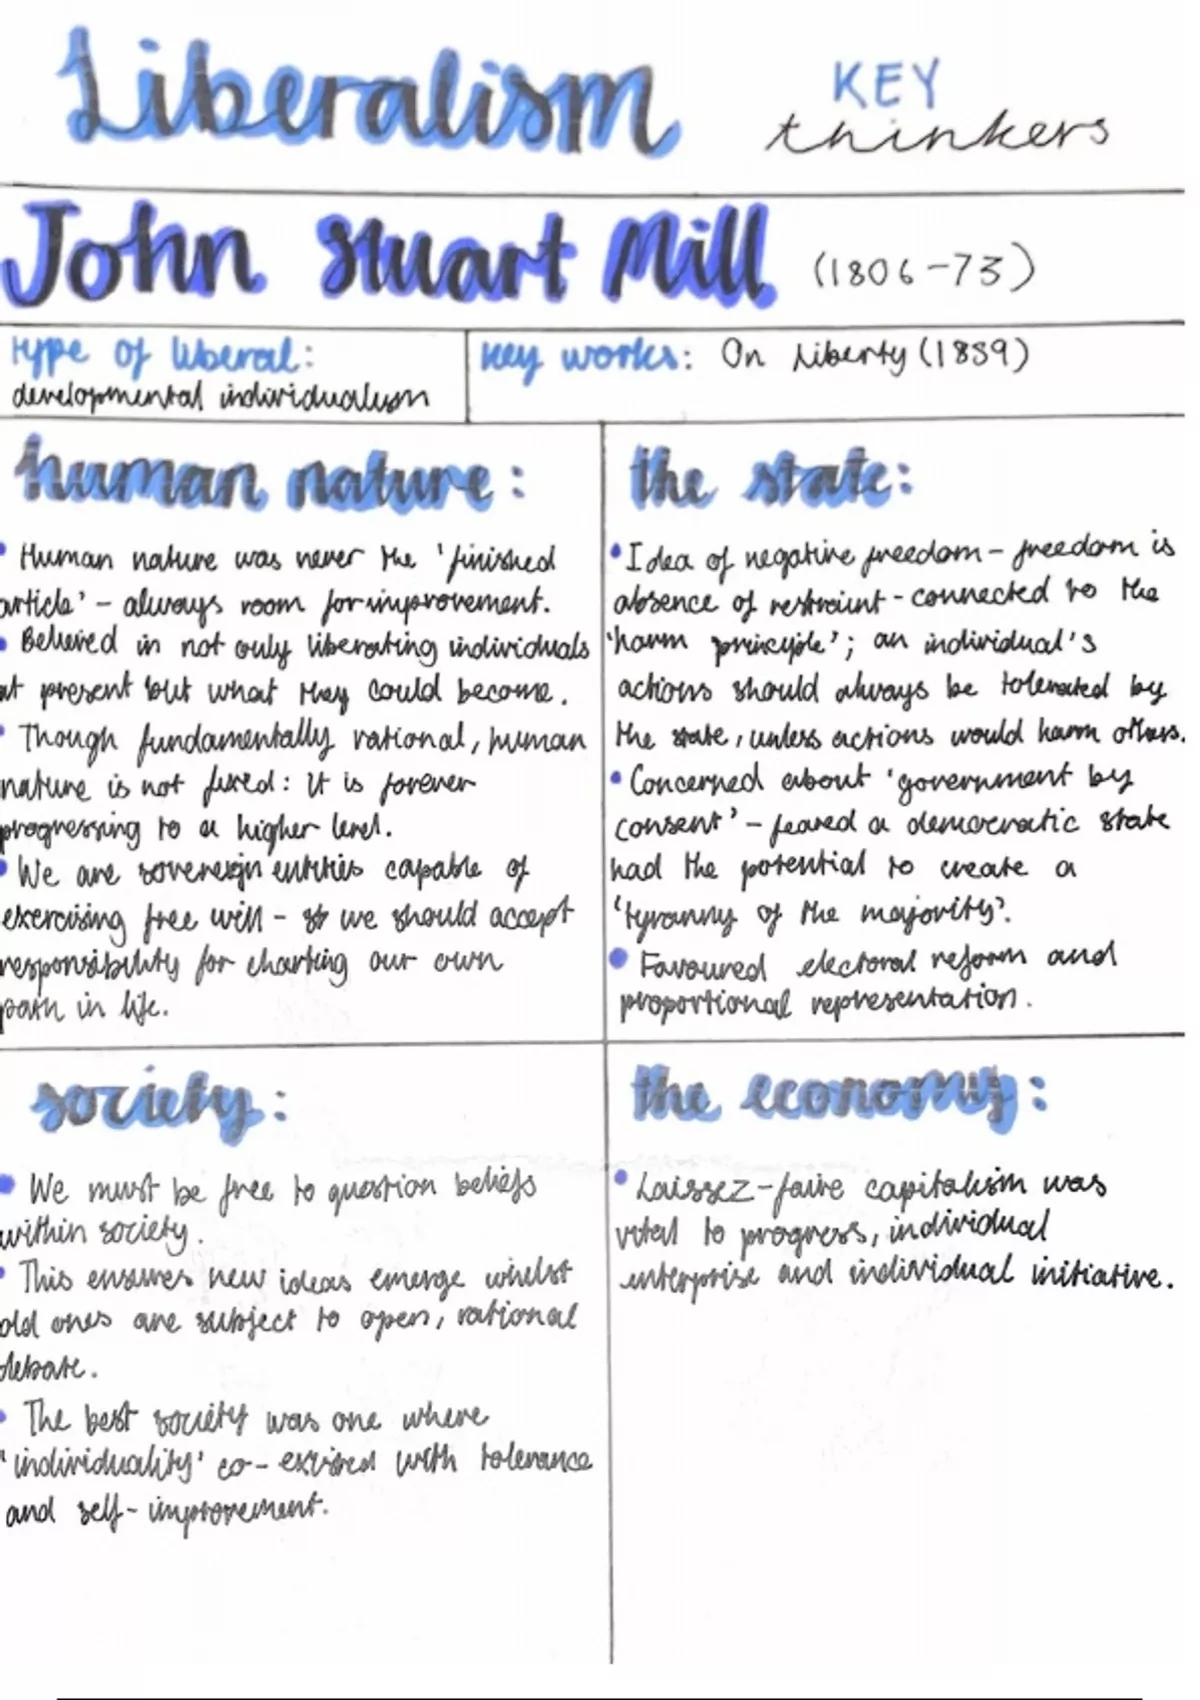 Liberalism
KEY
thinkers
John Stuart Mill (1806-73)
type of liberal:
developmental individualism
key works: On Liberty (1859)
human nature:
• Human nature was never the 'finished
article' - always room for improvement.
• Believed in not only liberating individuals
at present but what they could become.
• Though fundamentally rational, human
nature is not fixed: it is forever
progressing to a higher level.
• We are sovereign entities capable of
exercising free will - so we should accept
responsibility for charting our own
path in life.
the state:
• Idea of negative freedom - freedom is
absence of restraint - connected to the
'harm principle'; an individual's
actions should always be tolerated by
the state, unless actions would harm others.
• Concerned about 'government by
consent' - feared a democratic state
had the potential to create a
'tyranny of the majority'.
• Favoured electoral reform and
proportional representation.
society:
• We must be free to question beliefs
within society.
• This ensures new ideas emerge whilst
old ones are subject to open, rational
debate.
• The best society was one where
'individuality' co-existed with tolerance
and self-improvement.
the economy:
• Laissez-faire capitalism was
vital to progress, individual
enterprise and individual initiative.